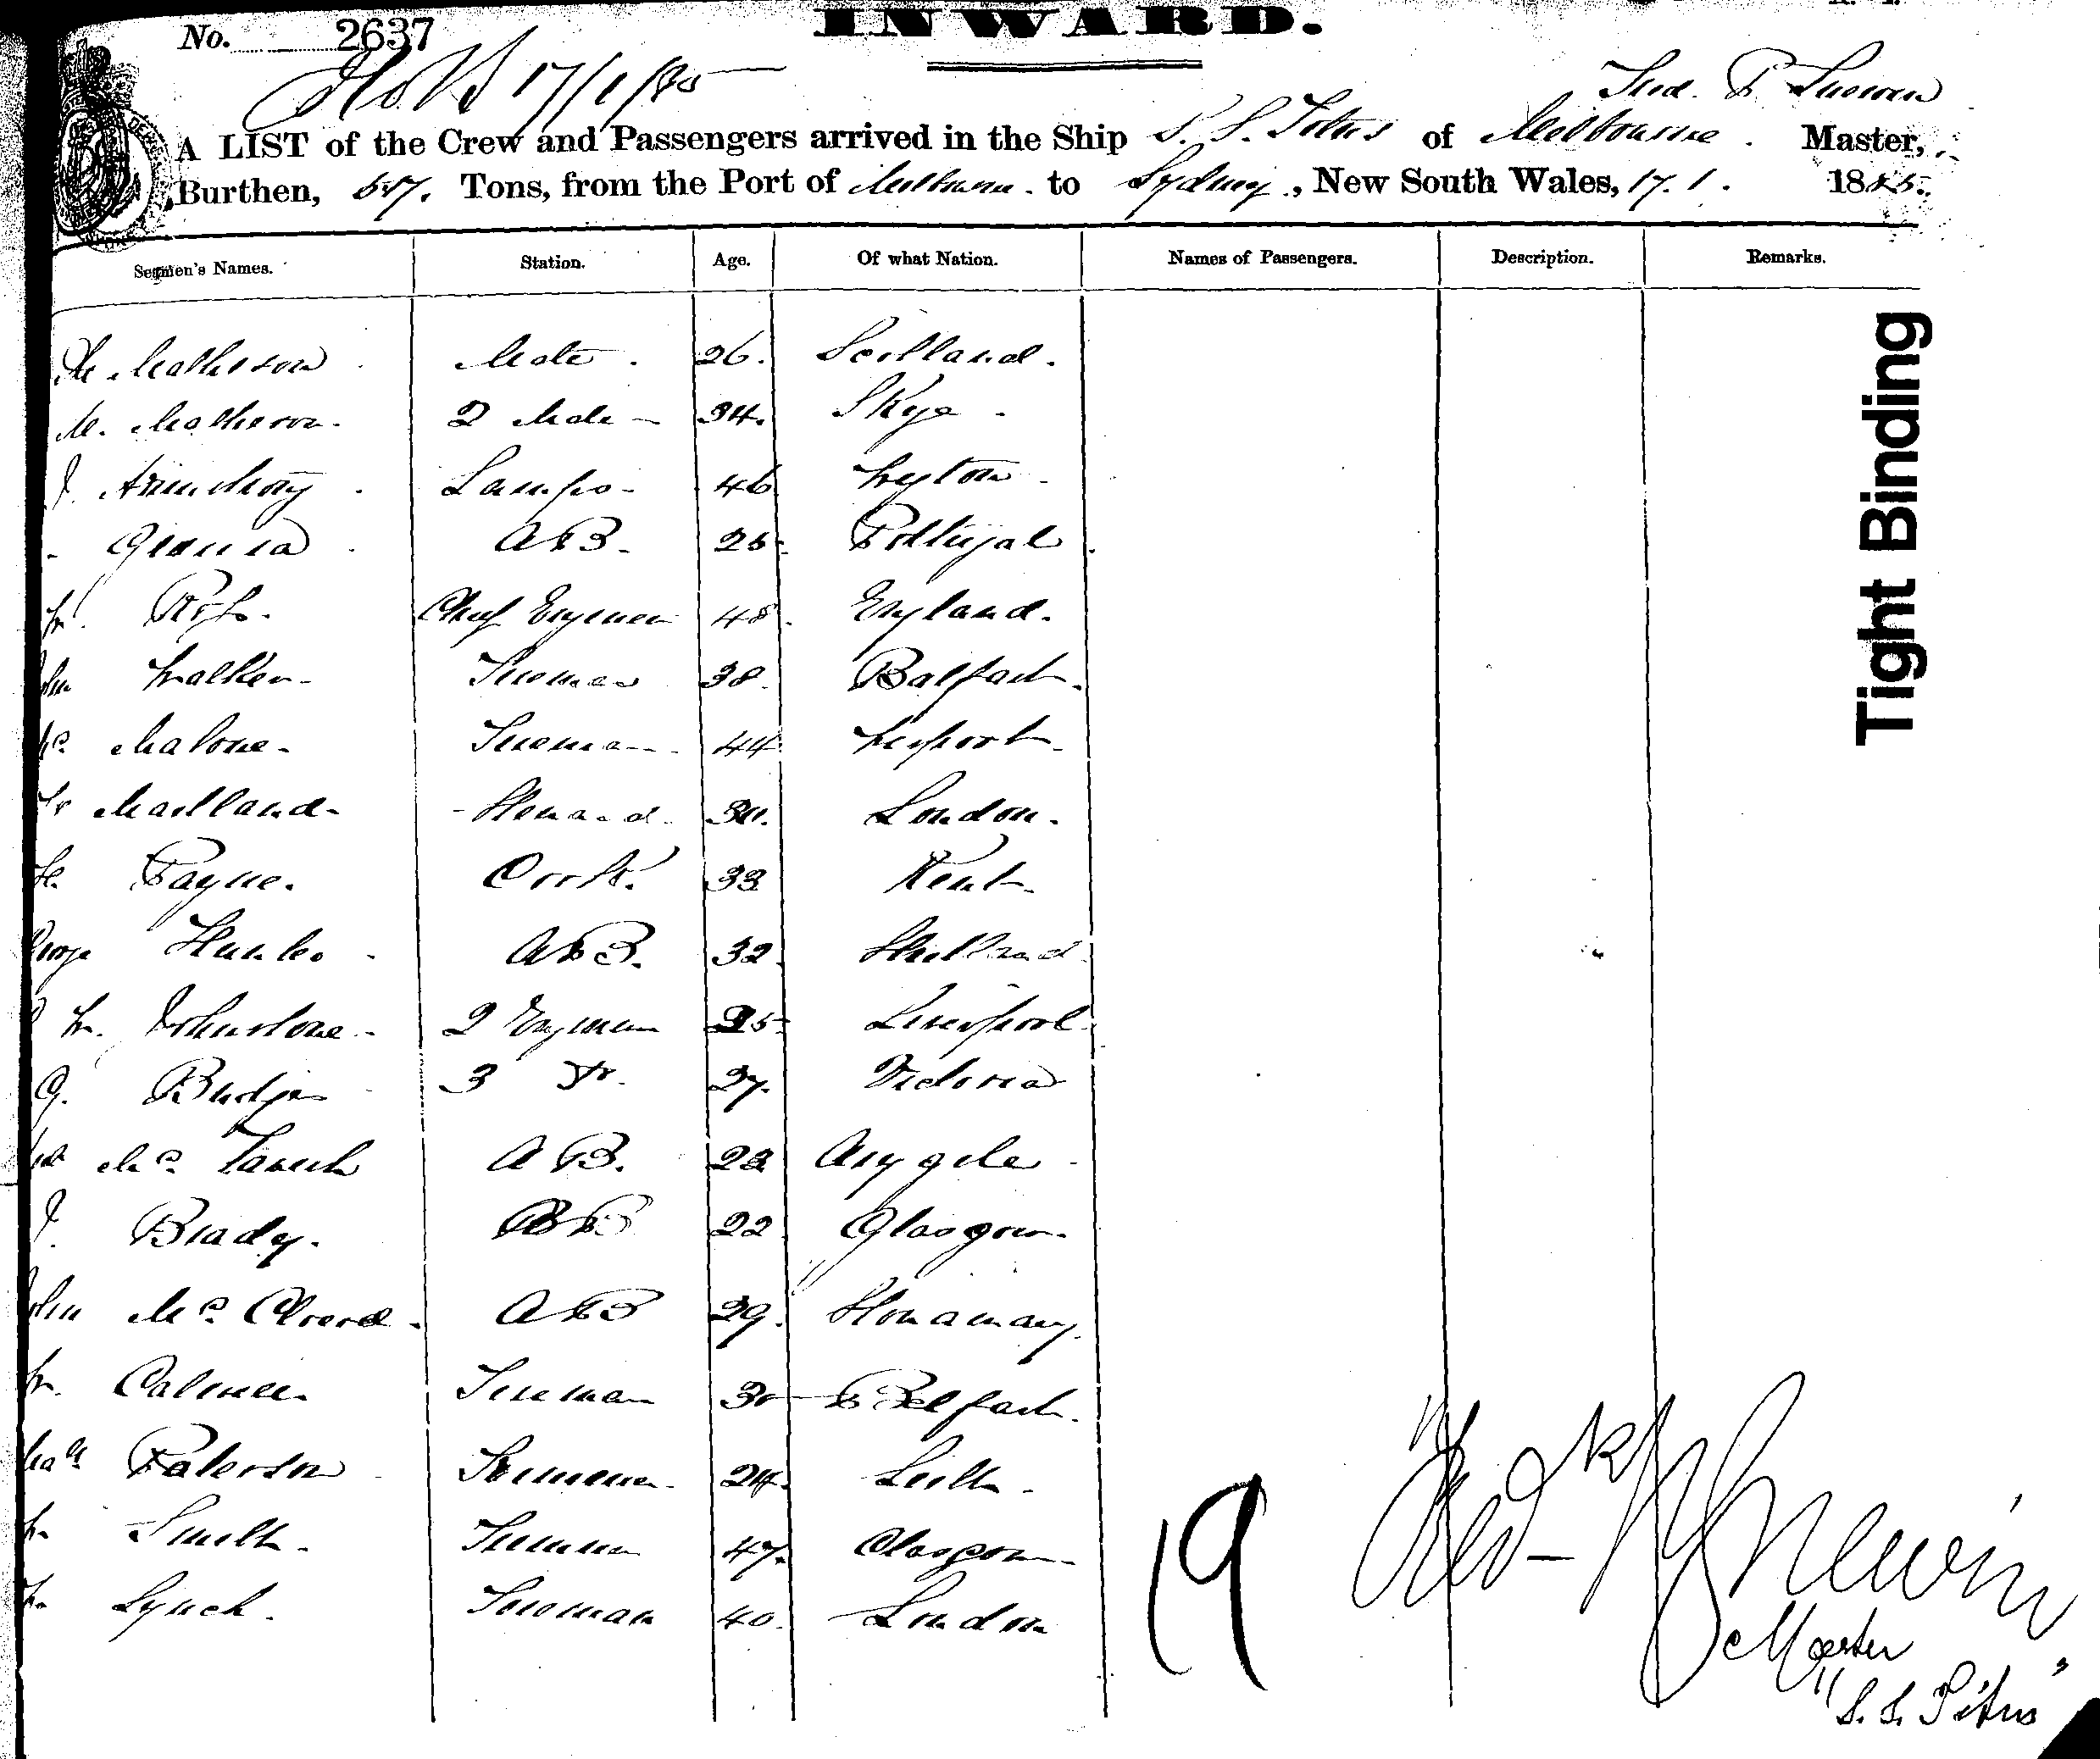 No. 2637 INWARD.
17/1/85
A LIST of the Crew and Passengers arrived in the Ship S. S. Titus of Melbourne. Master,
Burthen, Tons, from the Port of Melbourne. to Sydney, New South Wales, 17. 1. 1885.
Seamen's Names. Station. Age. Of what Nation. Names of Passengers. Description. Remarks.
Matheson Mate. 26. Scotland.
M. Matheson. 2 Mate 34. Skye
J. Armstrong. Lamps. 46
AB. 25 Portugal
Ross. Chief Engineer 48. England.
John Walker. Fireman 38. Balfast.
Malone. Fireman. 44
Maitland. Steward. London.
Payne. Cook. 33 Kent.
George AB. 32. Shetland
W. Johnstone. 2 Engineer 25 Liverpool
G. 3 Do. 27. Victoria
Mc. Tavish AB. Argyle
J. Brady. AB 22 Glasgow.
John Mc. AB 29. Stornaway.
Fireman 30 Belfast.
Paterson Fireman. 24. Leith.
Smith. Fireman 47. Glasgow
Lynch. Fireman 40. London
19
Master
"S. S. Titus"
Tight Binding